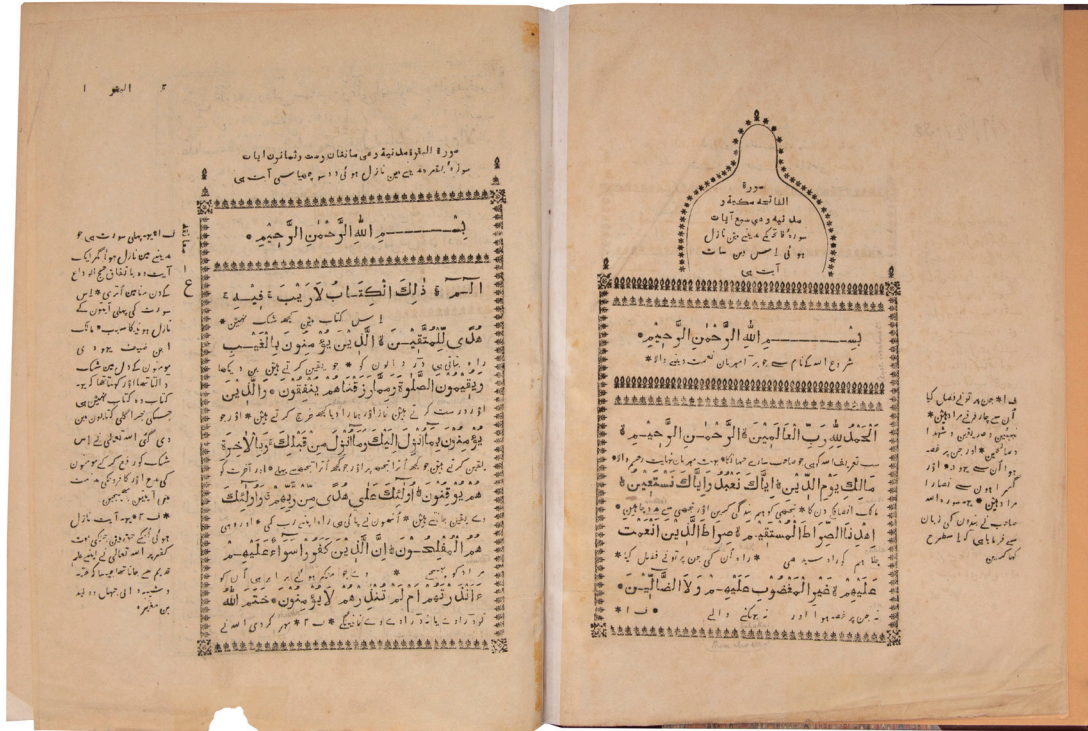 سورة
الفاتحه مكية و
مدنية وهي سبع آيات
سورهٔ فاتحہ مکے مدینے مین نازل
ہوئی اسمین سات
آیت ہی
بِسْــــــمِ اللهِ الرَّحْمٰنِ الرَّحِيْمِ
شروع اللہ کے نام سے جو بڑا مہربان نعمت دینے والا
اَلْحَمْدُ لِلّٰهِ رَبِّ الْعَالَمِيْنَ ۙ الرَّحْمٰنِ الرَّحِيْمِ ۙ
سب تعریف اللہ کو ہی جو صاحب سارے جہان کا * بہت مہربان نہایت رحم والا *
مَالِكِ يَوْمِ الدِّيْنِ ۙ اِيَّاكَ نَعْبُدُ وَاِيَّاكَ نَسْتَعِيْنُ ۙ
مالک انصاف کے دن کا * تجھی کو ہم بندگی کرین اور تجھی سے مدد چاہین *
اِهْدِنَا الصِّرَاطَ الْمُسْتَقِيْمَ ۙ صِرَاطَ الَّذِيْنَ اَنْعَمْتَ
چلا ہم کو راہ سیدھی * راہ اُن کی جن پر تو نے فضل کیا *
عَلَيْهِمْ ۙ غَيْرِ الْمَغْضُوْبِ عَلَيْهِمْ وَلَا الضَّالِّيْنَ ۙ
نہ جن پر غصہ ہوا اور نہ بہکنے والے * ف ا *
ف ا * جن پر تو نے فضل کیا
اُن سے چار فرقے مراد ہین *
نبیین و صدیقین و شہدا
و صالحین * اور جن پر غصہ
ہوا اُن سے یہود * اور
گمراہون سے نصارا
مراد ہین *
صاحب نے بندون کی زبان
سے فرمایا ہی کہ اسطرح
کہا کرین
٢ البقر ا
سورة البقرة مدنية وهي مائتان وست وثمانون ايات
سورۂ بقر مدینے مین نازل ہوئی دو سو چھیاسی آیت ہی
بِسْــــــمِ اللهِ الرَّحْمٰنِ الرَّحِيْمِ
الٓــمٓ ۚ ذٰلِكَ الْكِتَابُ لَا رَيْبَ ۛ فِيْهِ ۛ
اس کتاب مین کچھ شک نہین *
هُدًى لِّلْمُتَّقِيْنَ ۙ الَّذِيْنَ يُؤْمِنُوْنَ بِالْغَيْبِ
راہ بتاتی ہی ڈر والون کو * جو یقین کرتے ہین بن دیکھا
وَيُقِيْمُوْنَ الصَّلٰوةَ وَمِمَّا رَزَقْنَاهُمْ يُنْفِقُوْنَ ۙ وَالَّذِيْنَ
اور درست کرتے ہین نماز اور ہمارا دیا کچھ خرچ کرتے ہین * اور جو
يُؤْمِنُوْنَ بِمَا اُنْزِلَ اِلَيْكَ وَمَا اُنْزِلَ مِنْ قَبْلِكَ ۚ وَبِالْاٰخِرَةِ
یقین کرتے ہین جو کچھ اُترا تجھہ پر اور جو کچھ اُترا تجھسے پہلے * اور آخرت کو
هُمْ يُوْقِنُوْنَ ۙ اُولٰئِكَ عَلٰى هُدًى مِّنْ رَّبِّهِمْ ۙ وَاُولٰئِكَ
وے یقین جانتے ہین * اُنہون نے پائی ہی راہ اپنے رب کی * اور وہی
هُمُ الْمُفْلِحُوْنَ ۙ اِنَّ الَّذِيْنَ كَفَرُوْا سَوَآءٌ عَلَيْهِمْ
مراد کو پہنچے * وے جو منکر ہوئے برابر ہی اُن کو
ءَاَنْذَرْتَهُمْ اَمْ لَمْ تُنْذِرْهُمْ لَا يُؤْمِنُوْنَ ۙ خَتَمَ اللهُ
تو ڈراوے یا نہ ڈراوے وے نمانینگے * ف ٢ * مہر کردی اللہ نے
ع
ف ا * یہ پہلی سورت ہی جو
مدینے مین نازل ہوئی مگر ایک
آیت وہ باتفاق حج الوداع
کے دن منا مین اُتری * اس
سورت کی پہلی آیتون کے
نازل ہونیکا سبب * مالک
ابن ضیف یہودی
مومنون کے دل مین شک
ڈالتا تھا اور کہتا تھا کہ یہ
کتاب وہ کتاب نہین ہی
جسکی خبر اگلی کتابون مین
دی گئی اللہ تعالی نے اس
شک کو رفع کرکے مومنون
* ف ٢ * یہ آیت نازل